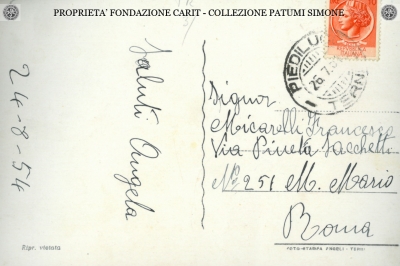 PROPRIETA' FONDAZIONE CARIT - COLLEZIONE PATUMI SIMONE
24-8-54
Saluti Angela
PIEDILUCO
TERNI
Signor
Micarelli Francesco
Via Pineta Sacchetti
Nº 251 M. Mario
Roma
Ripr. vietata
FOTO-STAMPA ANGELI - TERNI